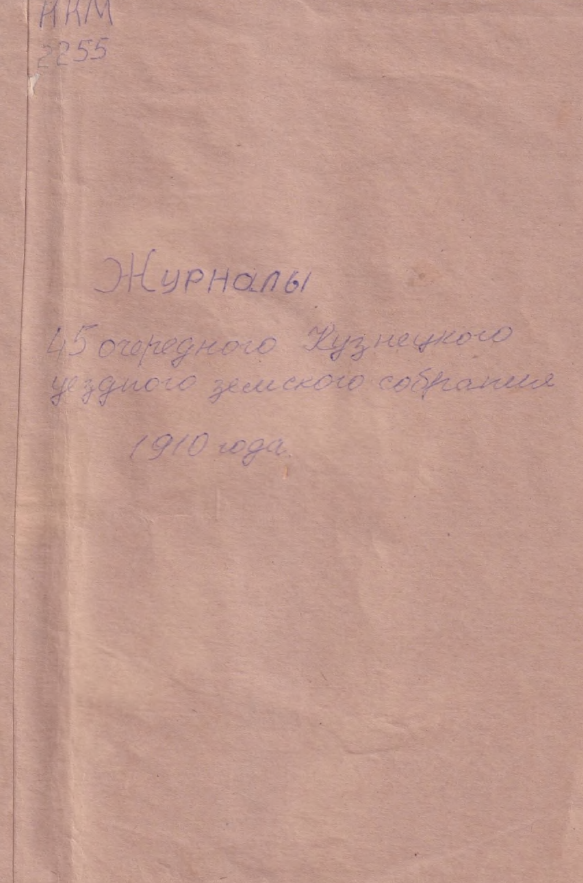 ККМ
2255
Журналы
45 очередного Кузнецкого
уездного земского собрания
1910 года